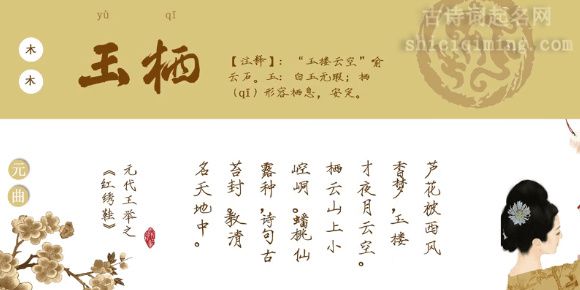 古诗词起名网
shiciqiming.com
yù qī
木
木
玉栖
【注释】:“玉楼云空”喻
云石。玉:白玉无瑕;栖
(qī)形容栖息,安定。
元
曲
芦花被西风
香梦,玉楼
才夜月云空。
栖云山上小
崆峒。蟠桃仙
露种,诗句古
苔封,教清
名天地中。
元代王举之
《红绣鞋》